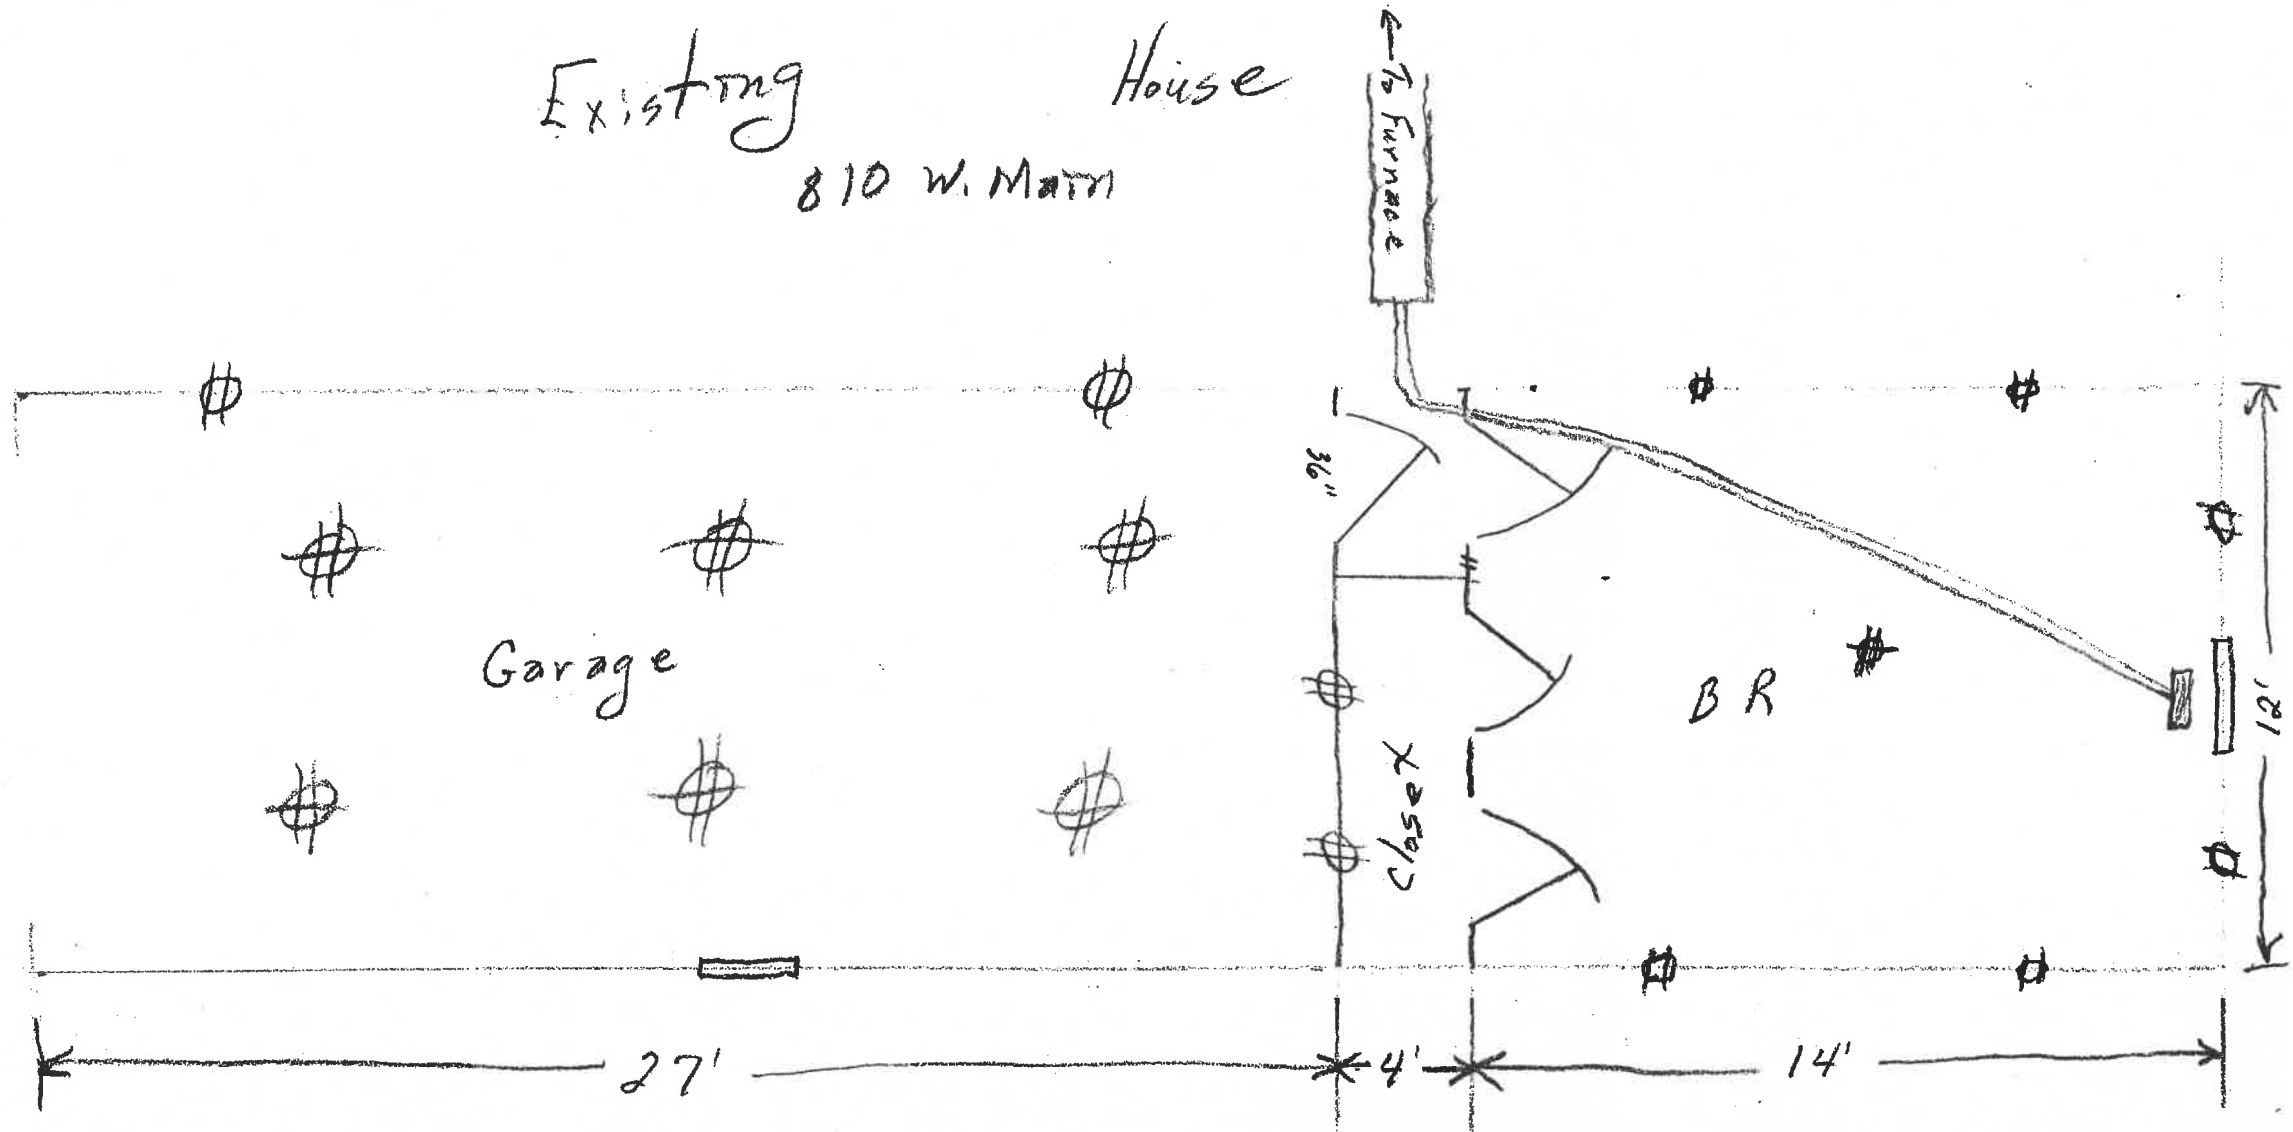 Existing House
810 W. Main
←To Furnace
36"
Garage
BR
Closet
12'
27'
4'
14'